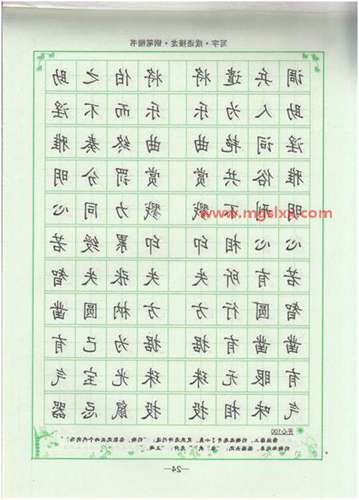 写字·成语接龙·钢笔楷书
调兵遣将 将伯之助
助人为乐 乐而不淫
淫词艳曲 曲终奏雅
雅俗共赏 赏罚分明
明刑不戮 戮力同心
心心相印 印累绶若
若有所失 失张失智
智圆行方 方枘圆凿
凿凿有据 据为己有
有眼无珠 珠光宝气
气味相投 投鼠忌器
www.mgslxx.com
开心100
—24—